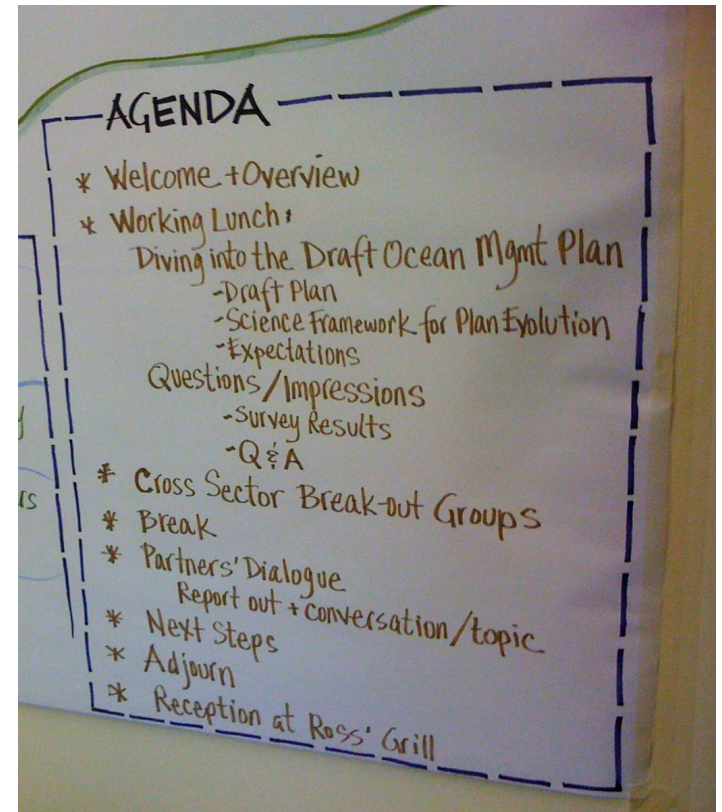 AGENDA
* Welcome + Overview
* Working Lunch:
Diving into the Draft Ocean Mgmt Plan
-Draft Plan
-Science Framework for Plan Evolution
-Expectations
Questions/Impressions
-Survey Results
-Q & A
* Cross Sector Break-out Groups
* Break
* Partners' Dialogue
Report out + conversation/topic
* Next Steps
* Adjourn
* Reception at Ross' Grill